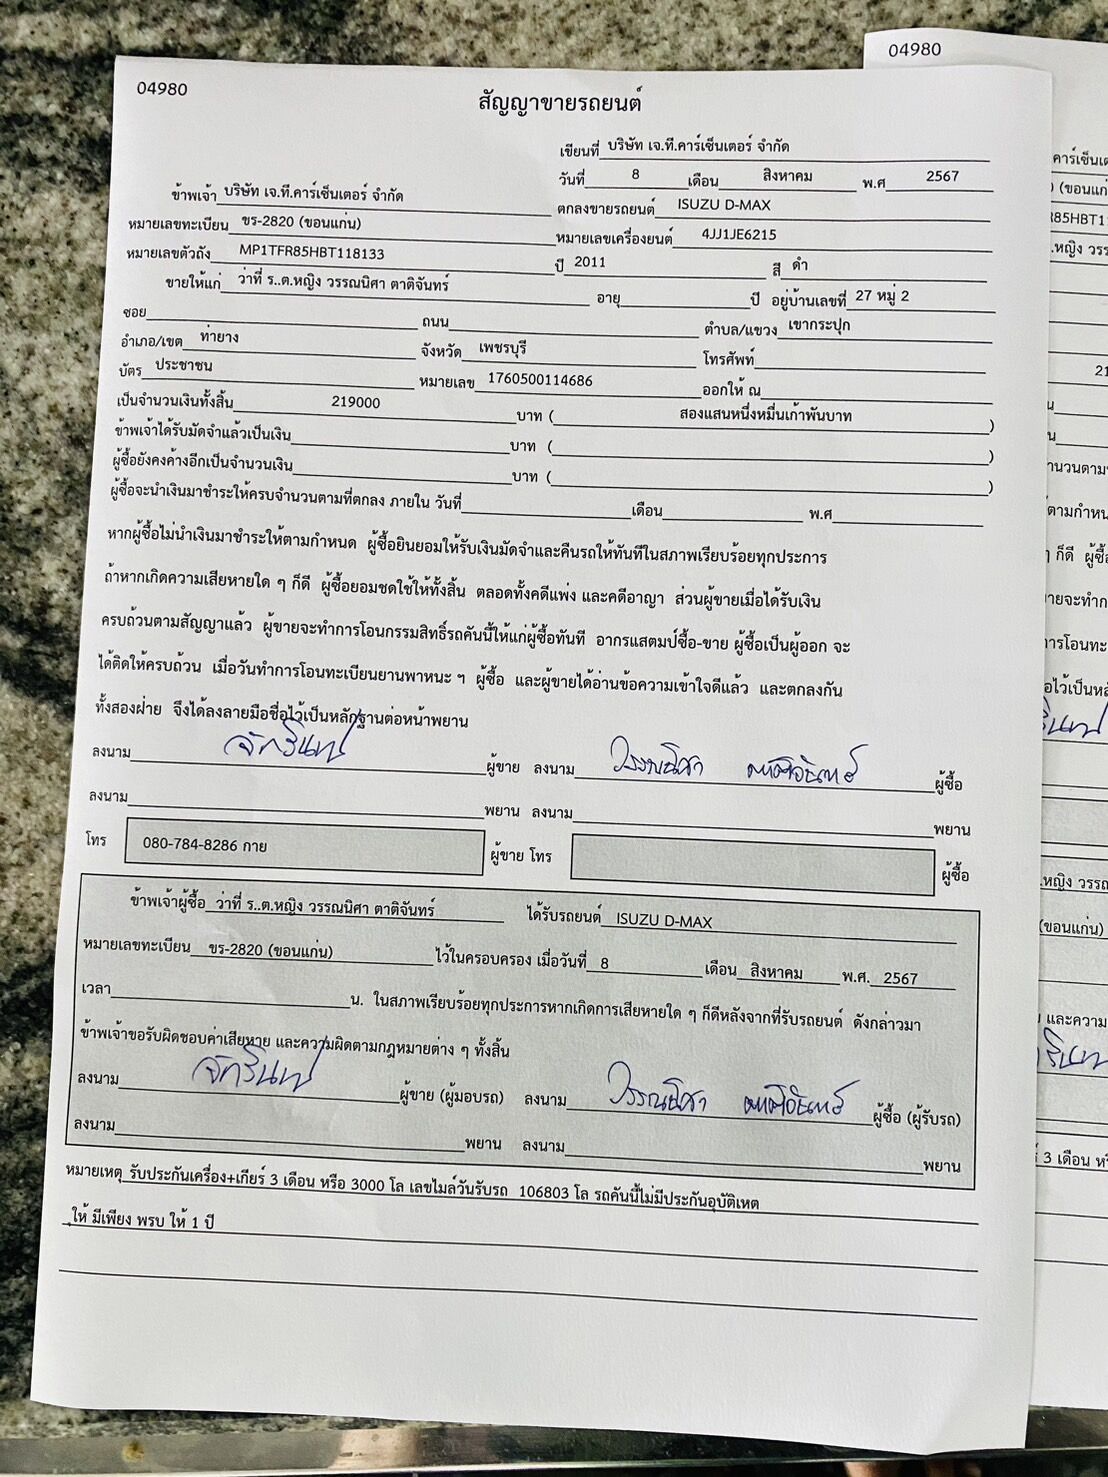 04980
04980
สัญญาขายรถยนต์
เขียนที่ บริษัท เจ.ที.คาร์เซ็นเตอร์ จำกัด
วันที่ 8 เดือน สิงหาคม พ.ศ 2567
ข้าพเจ้า บริษัท เจ.ที.คาร์เซ็นเตอร์ จำกัด ตกลงขายรถยนต์ ISUZU D-MAX
หมายเลขทะเบียน ขร-2820 (ขอนแก่น) หมายเลขเครื่องยนต์ 4JJ1JE6215
หมายเลขตัวถัง MP1TFR85HBT118133 ปี 2011 สี ดำ
ขายให้แก่ ว่าที่ ร..ต.หญิง วรรณนิศา ตาติจันทร์ อายุ ปี อยู่บ้านเลขที่ 27 หมู่ 2
ซอย ถนน ตำบล/แขวง เขากระปุก
อำเภอ/เขต ท่ายาง จังหวัด เพชรบุรี โทรศัพท์
บัตร ประชาชน หมายเลข 1760500114686 ออกให้ ณ
เป็นจำนวนเงินทั้งสิ้น 219000 บาท ( สองแสนหนึ่งหมื่นเก้าพันบาท )
ข้าพเจ้าได้รับมัดจำแล้วเป็นเงิน บาท ( )
ผู้ซื้อยังคงค้างอีกเป็นจำนวนเงิน บาท ( )
ผู้ซื้อจะนำเงินมาชำระให้ครบจำนวนตามที่ตกลง ภายใน วันที่ เดือน พ.ศ
หากผู้ซื้อไม่นำเงินมาชำระให้ตามกำหนด ผู้ซื้อยินยอมให้รับเงินมัดจำและคืนรถให้ทันทีในสภาพเรียบร้อยทุกประการ
ถ้าหากเกิดความเสียหายใด ๆ ก็ดี ผู้ซื้อยอมชดใช้ให้ทั้งสิ้น ตลอดทั้งคดีแพ่ง และคดีอาญา ส่วนผู้ขายเมื่อได้รับเงิน
ครบถ้วนตามสัญญาแล้ว ผู้ขายจะทำการโอนกรรมสิทธิ์รถคันนี้ให้แก่ผู้ซื้อทันที อากรแสตมป์ซื้อ-ขาย ผู้ซื้อเป็นผู้ออก จะ
ได้ติดให้ครบถ้วน เมื่อวันทำการโอนทะเบียนยานพาหนะ ฯ ผู้ซื้อ และผู้ขายได้อ่านข้อความเข้าใจดีแล้ว และตกลงกัน
ทั้งสองฝ่าย จึงได้ลงลายมือชื่อไว้เป็นหลักฐานต่อหน้าพยาน
ลงนาม จักรินทร์ ผู้ขาย ลงนาม วรรณนิศา ตาติจันทร์ ผู้ซื้อ
ลงนาม พยาน ลงนาม พยาน
โทร 080-784-8286 กาย ผู้ขาย โทร ผู้ซื้อ
ข้าพเจ้าผู้ซื้อ ว่าที่ ร..ต.หญิง วรรณนิศา ตาติจันทร์ ได้รับรถยนต์ ISUZU D-MAX
หมายเลขทะเบียน ขร-2820 (ขอนแก่น) ไว้ในครอบครอง เมื่อวันที่ 8 เดือน สิงหาคม พ.ศ. 2567
เวลา น. ในสภาพเรียบร้อยทุกประการหากเกิดการเสียหายใด ๆ ก็ดีหลังจากที่รับรถยนต์ ดังกล่าวมา
ข้าพเจ้าขอรับผิดชอบค่าเสียหาย และความผิดตามกฎหมายต่าง ๆ ทั้งสิ้น
ลงนาม จักรินทร์ ผู้ขาย (ผู้มอบรถ) ลงนาม วรรณนิศา ตาติจันทร์ ผู้ซื้อ (ผู้รับรถ)
ลงนาม พยาน ลงนาม พยาน
หมายเหตุ รับประกันเครื่อง+เกียร์ 3 เดือน หรือ 3000 โล เลขไมล์วันรับรถ 106803 โล รถคันนี้ไม่มีประกันอุบัติเหต
ุให้ มีเพียง พรบ ให้ 1 ปี